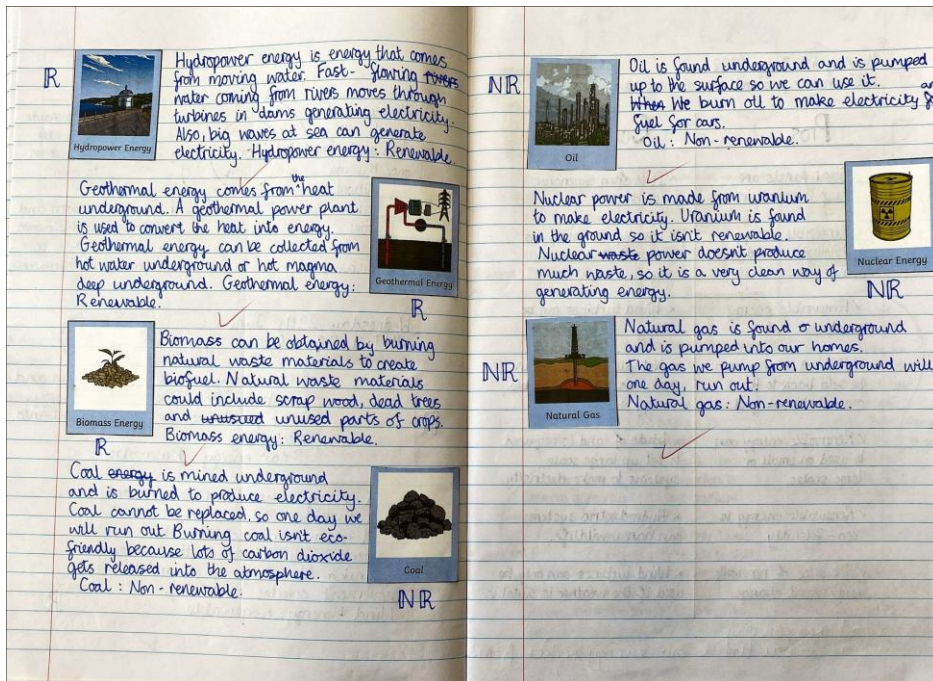 R
Hydropower Energy
Hydropower energy is energy that comes
from moving water. Fast- flowing rivers
water coming from rivers moves through
turbines in dams generating electricity.
Also, big waves at sea can generate
electricity. Hydropower energy: Renewable.
Geothermal energy comes from the heat
underground. A geothermal power plant
is used to convert the heat into energy.
Geothermal energy can be collected from
hot water underground or hot magma
deep underground. Geothermal energy:
Renewable.
Geothermal Energy
R
Biomass Energy
R
Biomass can be obtained by burning
natural waste materials to create
biofuel. Natural waste materials
could include scrap wood, dead trees
and unusued unused parts of crops.
Biomass energy: Renewable.
Coal energy is mined underground
and is burned to produce electricity.
Coal cannot be replaced, so one day we
will run out Burning coal isn't eco-
friendly because lots of carbon dioxide
gets released into the atmosphere.
Coal : Non-renewable.
Coal
NR
NR
Oil
Oil is found underground and is pumped
up to the surface so we can use it.
When We burn oil to make electricity
fuel for cars.
Oil: Non-renewable.
Nuclear power is made from uranium
to make electricity. Uranium is found
in the ground so it isn't renewable.
Nuclear waste power doesn't produce
much waste, so it is a very clean way of
generating energy.
Nuclear Energy
NR
NR
Natural Gas
Natural gas is found o underground
and is pumped into our homes.
The gas we pump from underground will
one day, run out.
Natural gas: Non-renewable.